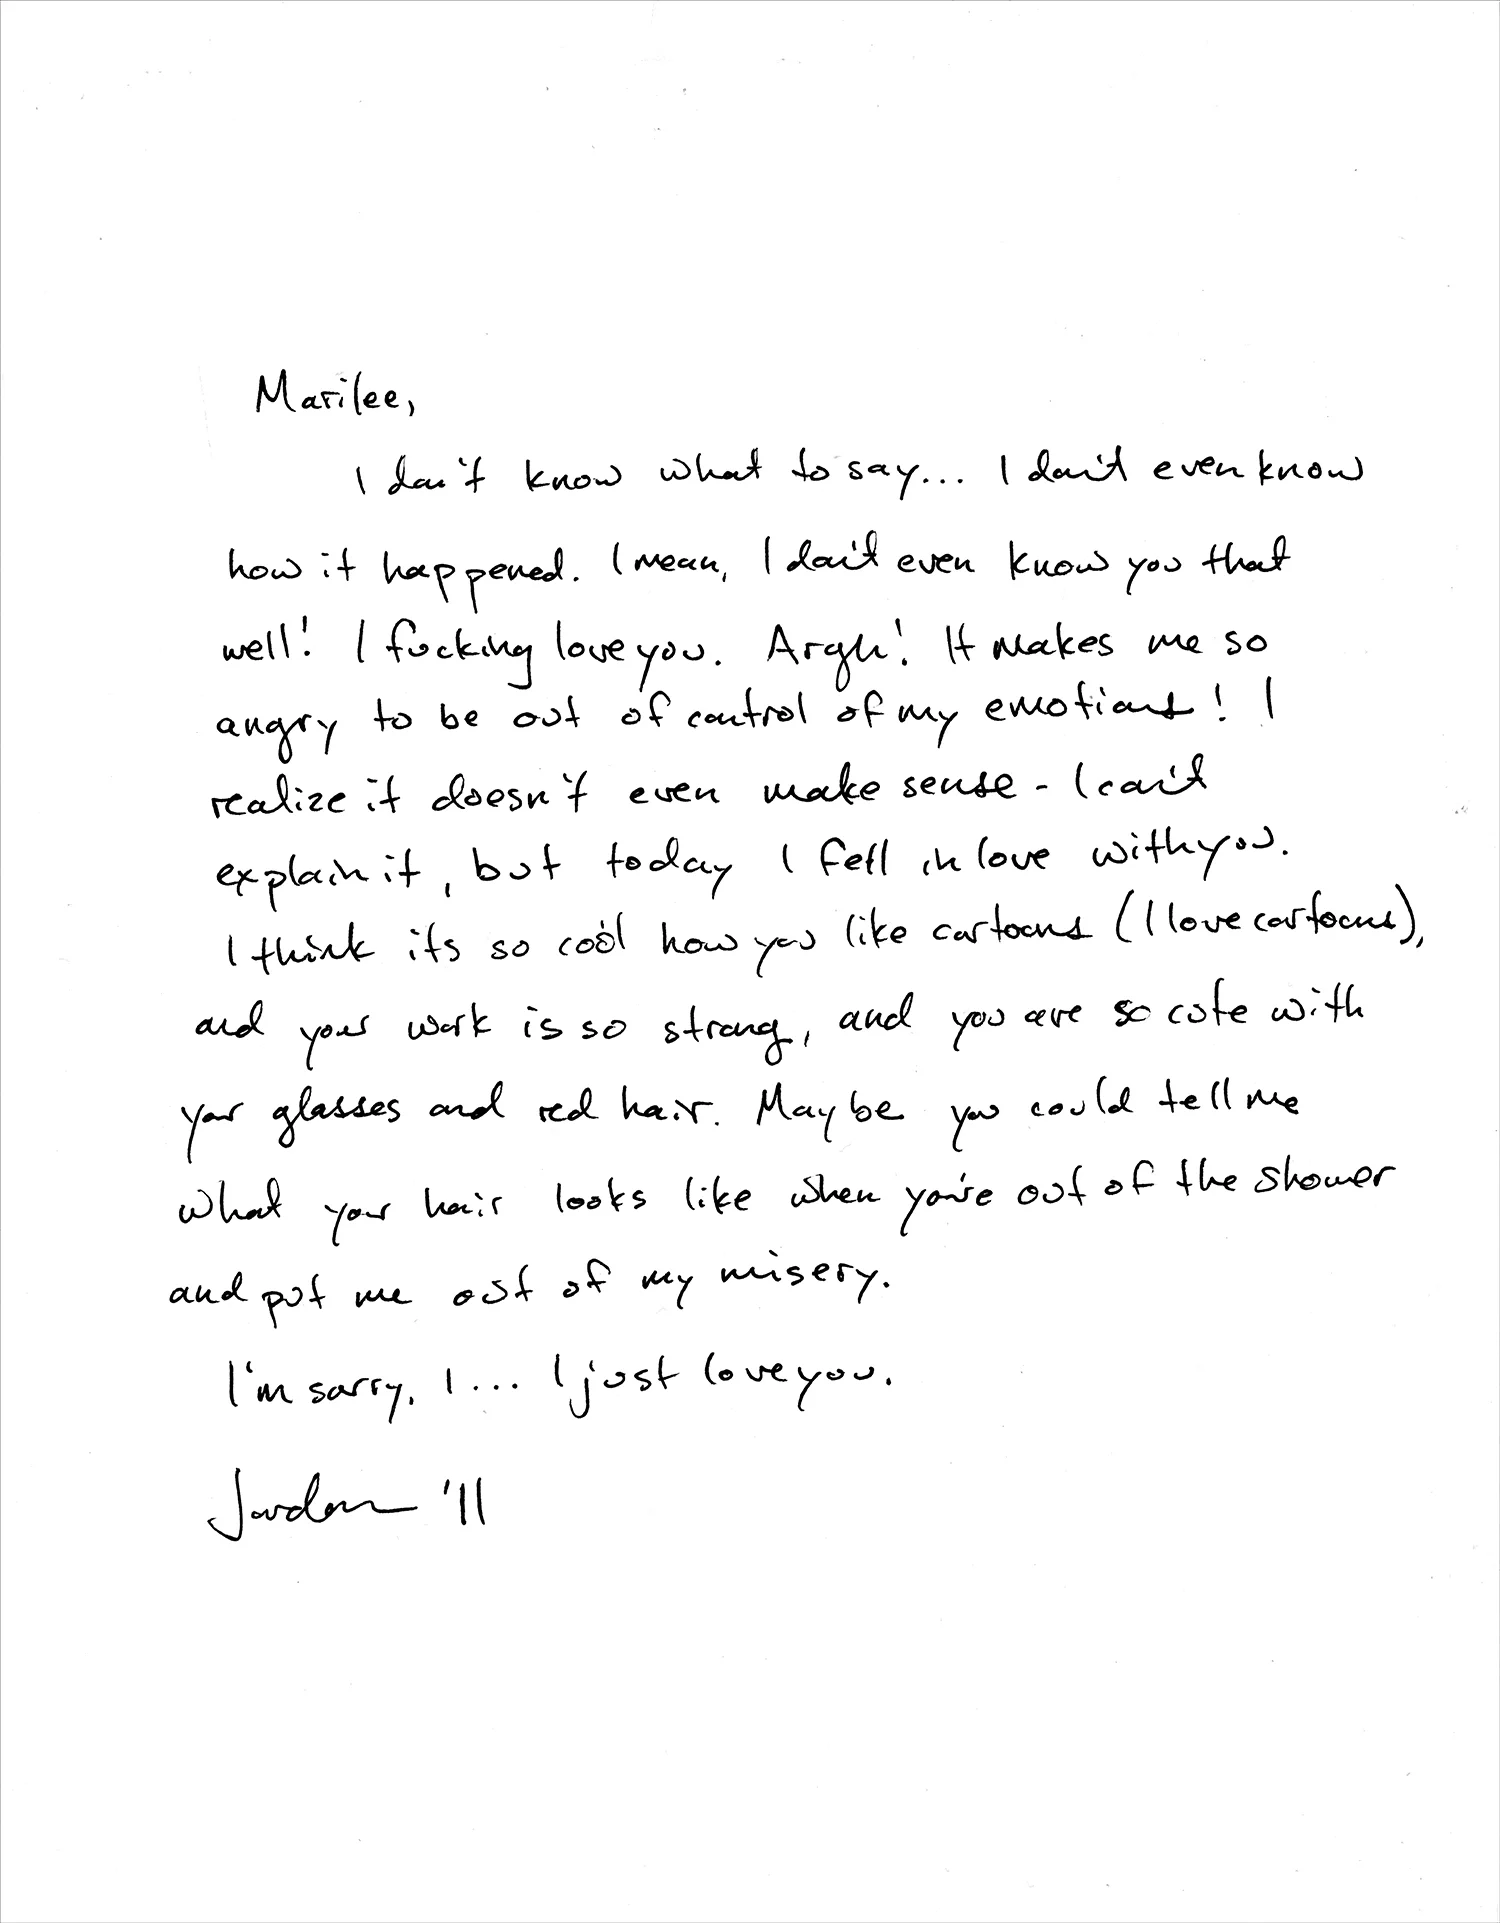 Marilee,
I don't know what to say... I don't even know
how it happened. I mean, I don't even know you that
well! I fucking love you. Argh! It makes me so
angry to be out of control of my emotions! I
realize it doesn't even make sense - I can't
explain it, but today I fell in love with you.
I think its so cool how you like cartoons (I love cartoons),
and your work is so strong, and you are so cute with
your glasses and red hair. Maybe you could tell me
what your hair looks like when you're out of the shower
and put me out of my misery.
I'm sorry, I... I just love you.
Jordan '11